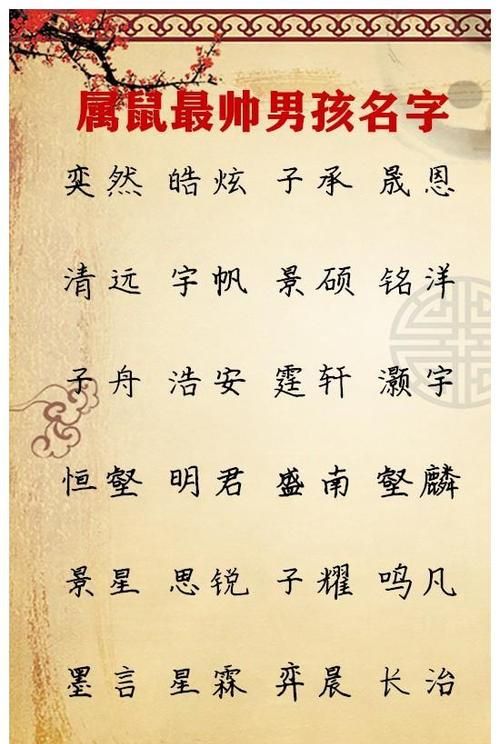 属鼠最帅男孩名字
奕然 皓炫 子承 晟恩
清远 宇帆 景硕 铭洋
子舟 浩安 霆轩 灏宇
恒壑 明君 盛南 壑麟
景星 思锐 子耀 鸣凡
墨言 星霖 弈晨 长治